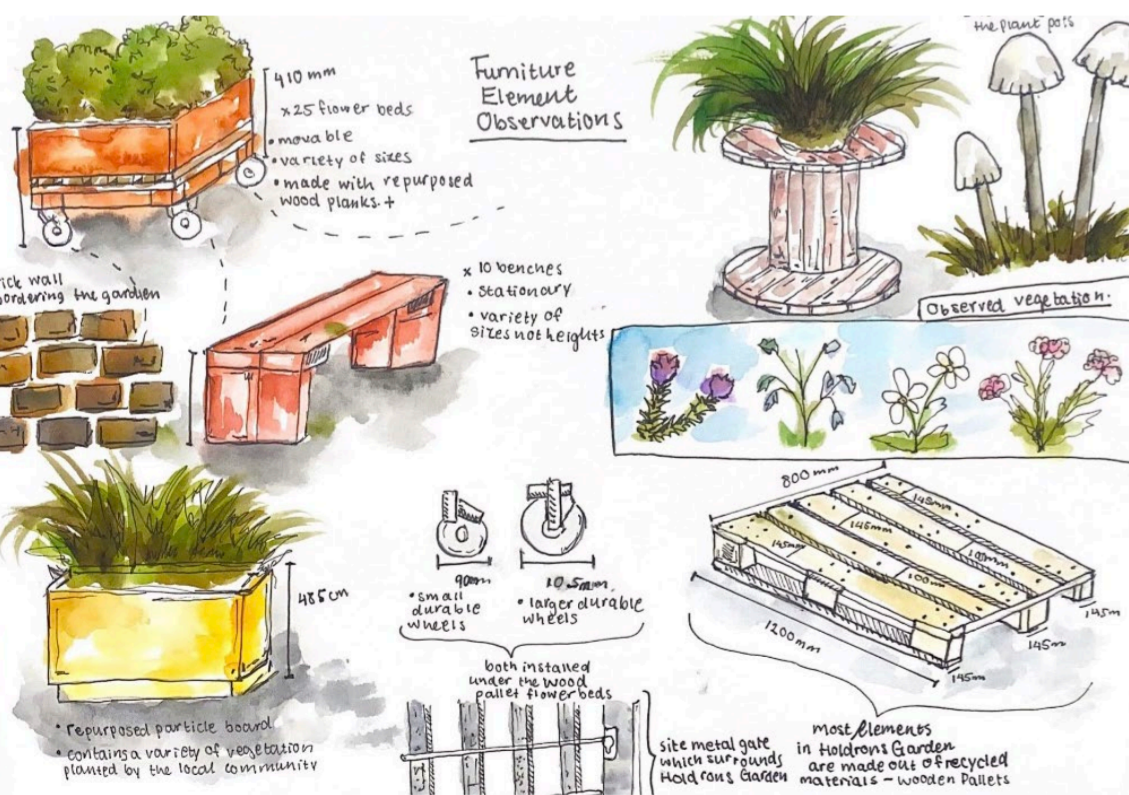 the plant pots
Furniture
Element
Observations
410 mm
x25 flower beds
• movable
• variety of sizes
• made with repurposed
wood planks. +
wall
bordering the garden
x 10 benches
• stationary
• variety of
sizes not heights
Observed vegetation.
485cm
• repurposed particle board
• contains a variety of vegetation
planted by the local community
90mm
• small
durable
wheels
10.5mm
• larger durable
wheels
both installed
under the wood
pallet flower beds
site metal gate
which surrounds
Holdrons Garden
800mm
145mm
145mm
100mm
145mm
100mm
1200mm
145m
145m
145m
most elements
in Holdrons Garden
are made out of recycled
materials – wooden Pallets